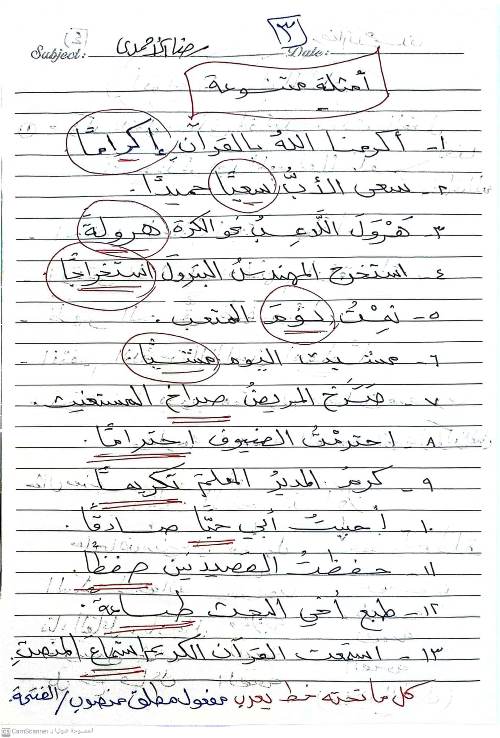 ٤
٣
Subject: رضا الأحمدي Date:
أمثلة متنوعة
١- أكرمنا اللهُ بالقرآنِ إكرامًا
٢- سعى الأبُّ سعيًا حميدًا.
٣- هَرْوَلَ اللَّاعِبُ نحو الكرة هرولةً
٤- استخرج المهندسُ البترولَ استخراجًا
٥- نِمْتُ نومَ المتعب.
٦- مشيت اليوم مشيًا.
٧- صَرَخَ المريضُ صراخَ المستغيث.
٨- احترمْتُ الضيوف احترامًا.
٩- كرمَ المديرُ المعلمَ تكريمًا
١٠- أحببتُ أبي حبًّا صادقًا.
١١- حفظتُ القصيدتين حفظًا.
١٢- طبع أخي البحث طباعةً.
١٣- استمعت القرآن الكريم استماع المنصتِ.
كل ما تحته خط يعرب مفعول مطلق منصوب/الفتحة.
CS CamScanner الممسوحة ضوئيا بـ